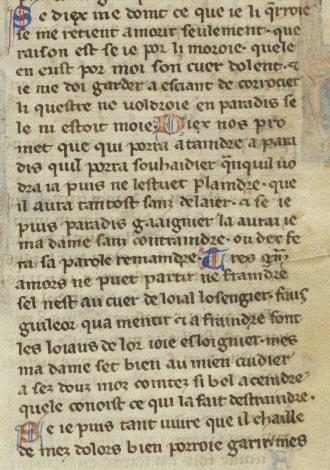 Se diex me doint ce que ie li q̄rroie
se me retient a morir seulement · que
raison est se ie por li moroie · quele
en eust por moi son cuer dolent · ⁊
ie me doi garder a esciant de corrocier
li questre ne voldroie en paradis se
le ni estoit moie · Diex nos pro
met que qui porra ataindre a para
dis quil porra souhaidier q̄nquil vo
dra ia puis ne lestuet plaindre · que
il aura tantost sanz delaier · ⁊ se ie
puis paradis gaaignier la aurai ie
ma dame sanz contraindre · ou dex fe
ra sa parole remaindre · Tres
amors ne puet partir ne fraindre
sel nest au cuer de loial losengier · faus
guileor qua mentir ⁊ a fraindre font
les loiaus de lor ioie esloignier · mes
ma dame set bien au mien cuidier
a sez douz moz cointez si bel aceindre
quele conoist ce qui la fait destraindre ·
Se ie puis tant vivre que il chaille
de mez dolors bien porroie garir · mes